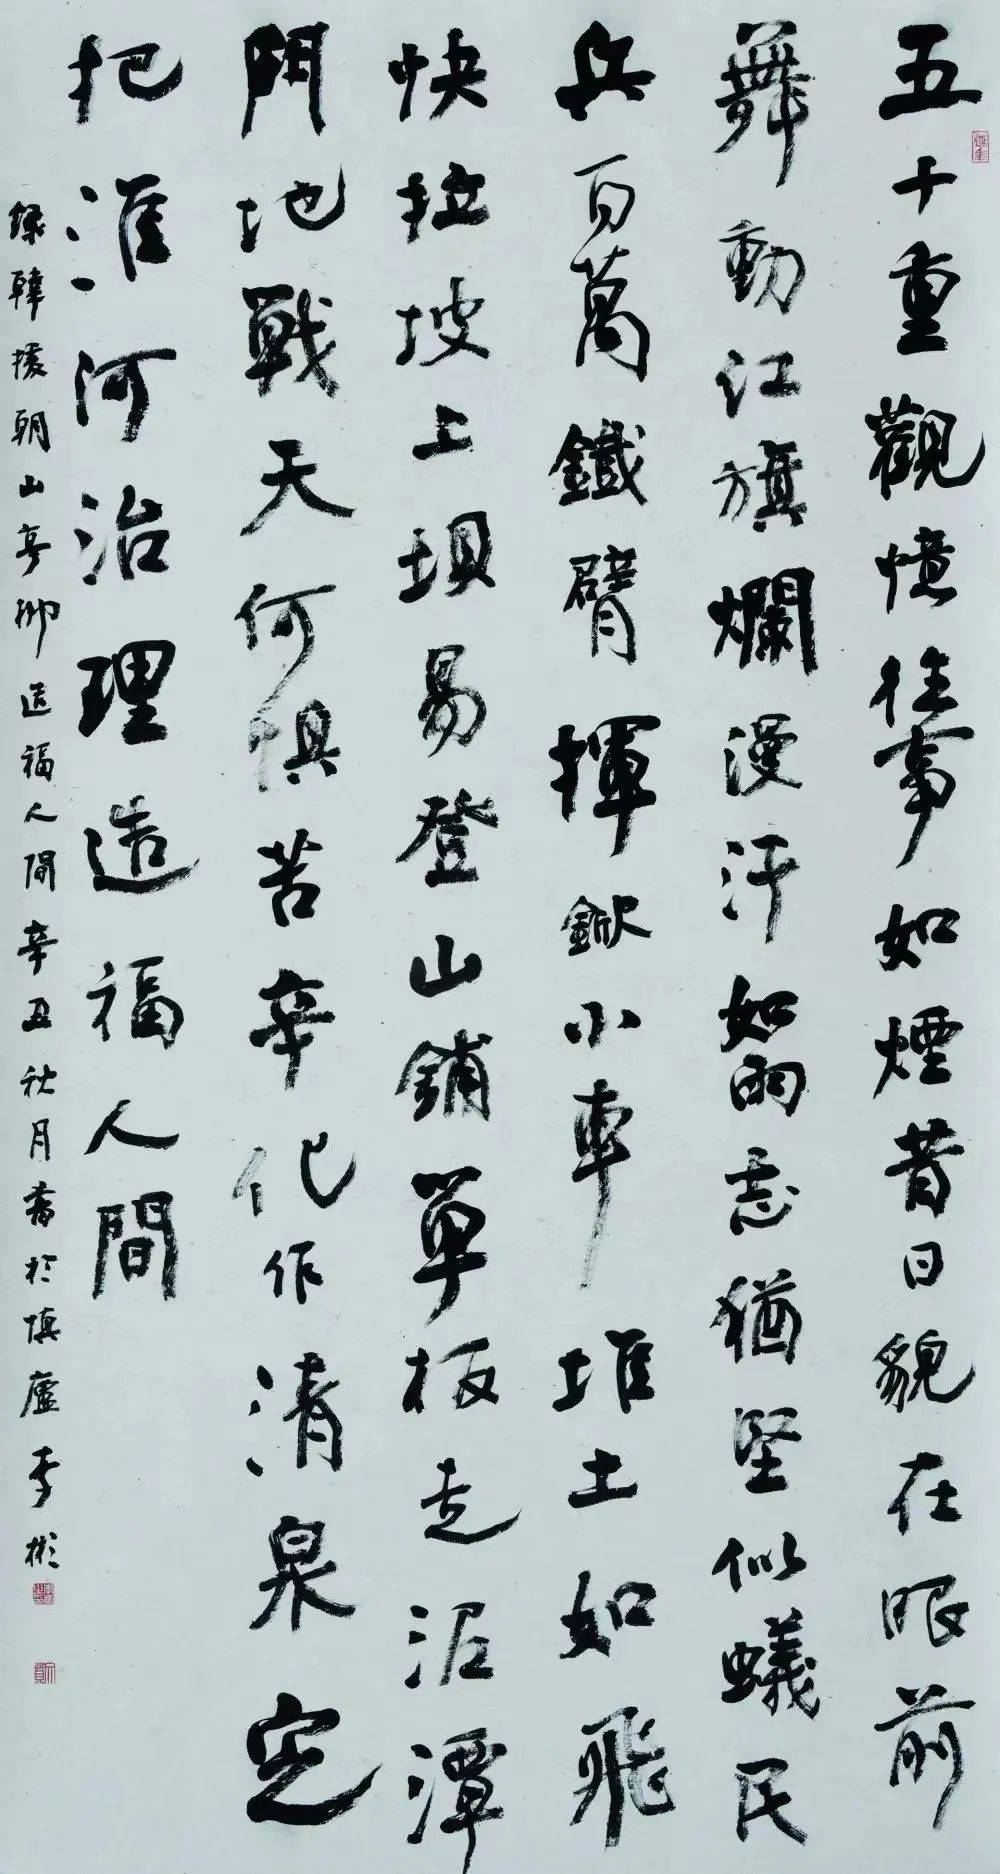 五十重觀憶往事如煙昔日貌在眼前
舞動红旗爛漫汗如雨志猶堅似蟻民
兵百萬鐵臂揮鍁小車堆土如飛
快拉坡上垻易登山鋪單板走泥潭
鬥地戰天何惧苦辛化作清泉定
把淮河治理造福人間
錄韓援朝山亭柳造福人間辛丑秋月書於慎廬李彬